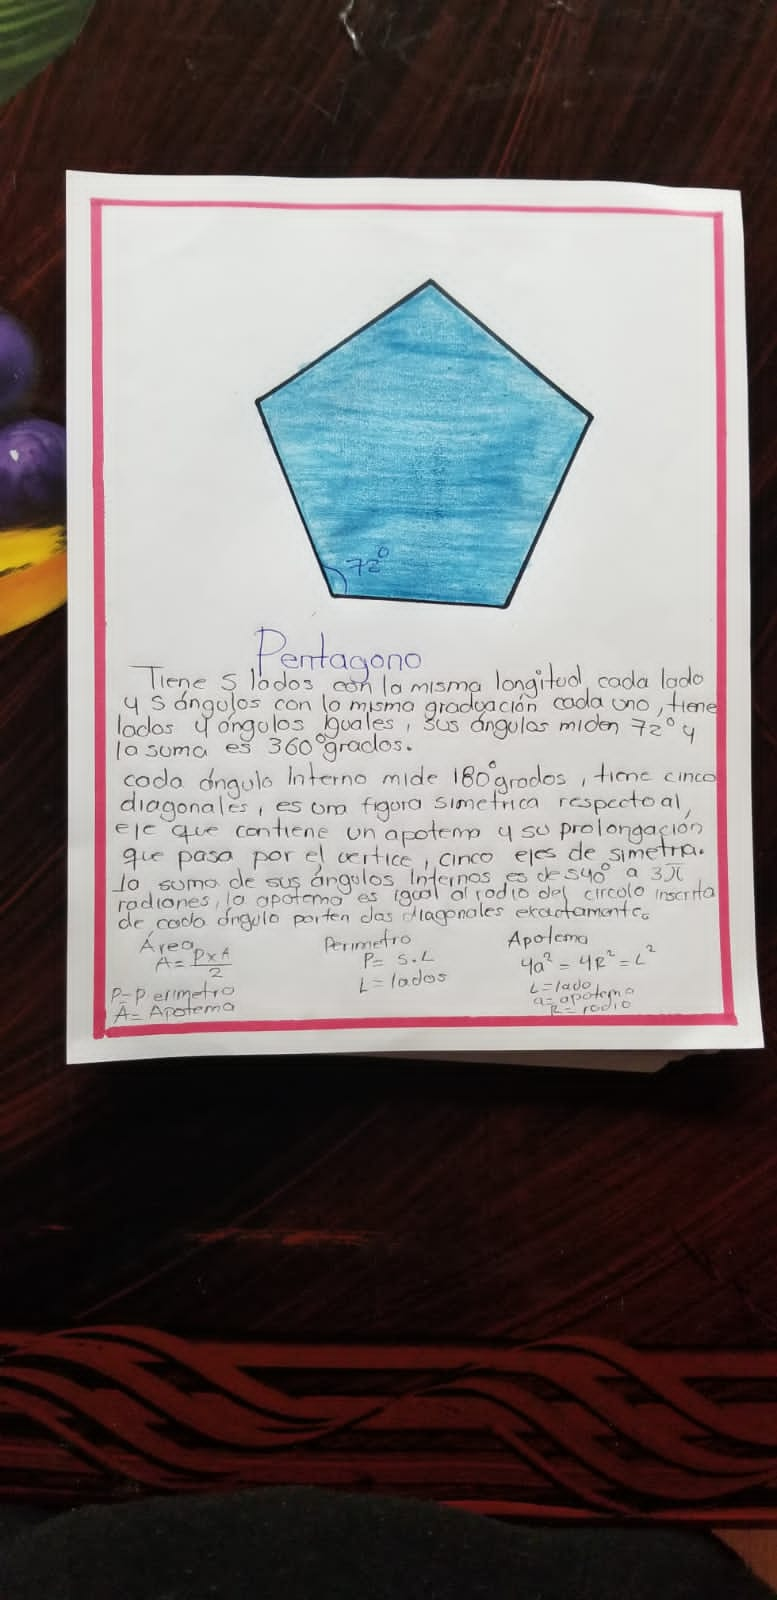 72°
Pentagono
Tiene 5 lados, con la misma longitud, cada lado
y 5 ángulos con la misma graduación cada uno, tiene
lados y ángulos iguales, sus ángulos miden 72° y
la suma es 360°grados.
cada ángulo interno mide 180°grados, tiene cinco
diagonales, es una figura simetrica respecto al,
eje que contiene un apotema y su prolongación
que pasa por el vertice, cinco ejes de simetria.
la suma de sus ángulos internos es de 540° a 3π
radianes, la apotema es igual al radio del circulo inscrita
de cada ángulo parten dos diagonales exactamente.
Área Perimetro Apotema
A= PxA/2 P= 5.L 4a² = 4R² = L²
P= Perimetro L= lados L= lado
A= Apotema a= apotema
R= radio